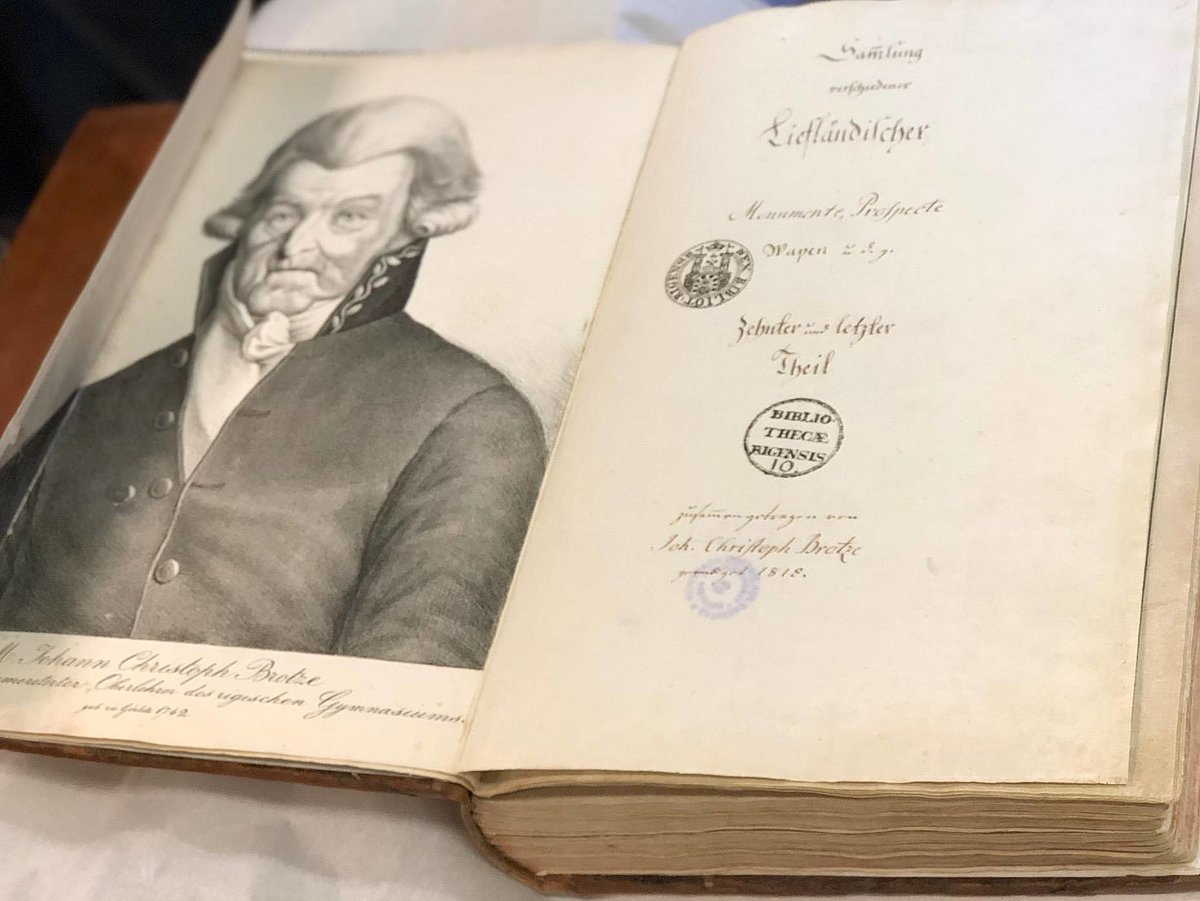 M. Johann Christoph Brotze
Oberlehrer des rigischen Gymnasiums.
geb. zu Görlitz 1742
Sam̅lung
verschiedener
Liefländischer
Monumente, Prospecte
Wapen u. d. g.
BIBLIOT RIGENSIS
Zehnter und letzter
Theil
BIBLIO
THECÆ
RIGENSIS
10.
zusam̅engetragen von
Joh. Christoph Brotze
1818.